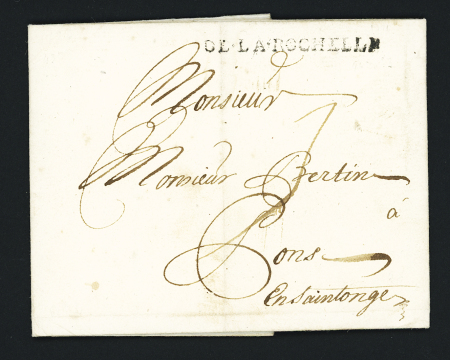 DE·LA·ROCHELLE
Monsieur
Monsieur Bertin
à
Pons
En Saintonge